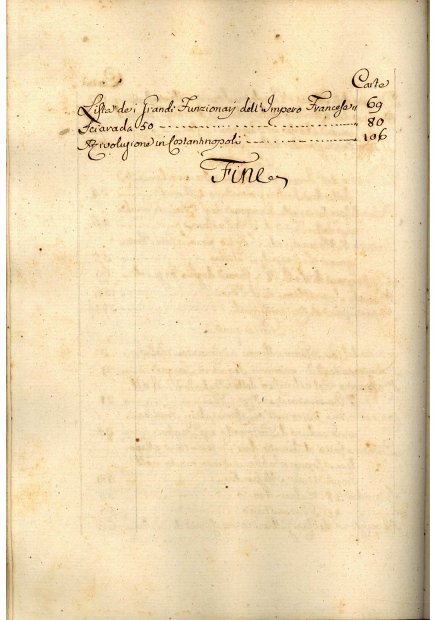 Carte
Lista dei Grandi Funzionarj dell' Impero Francese 69
Sciarada 50 80
Rivoluzione in Costantinopoli 106
Fine